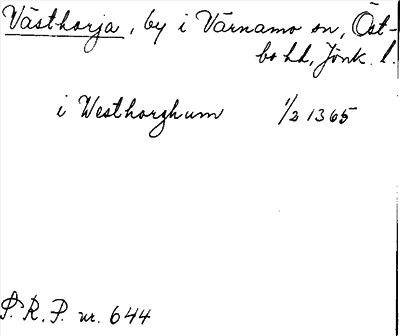 Västhorja, by i Värnamo sn, Öst-
bo hd, Jönk. l.
i Westhorghum 1/2 1365
S. R. P. nr. 644